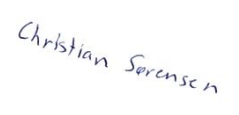 Christian Sørensen